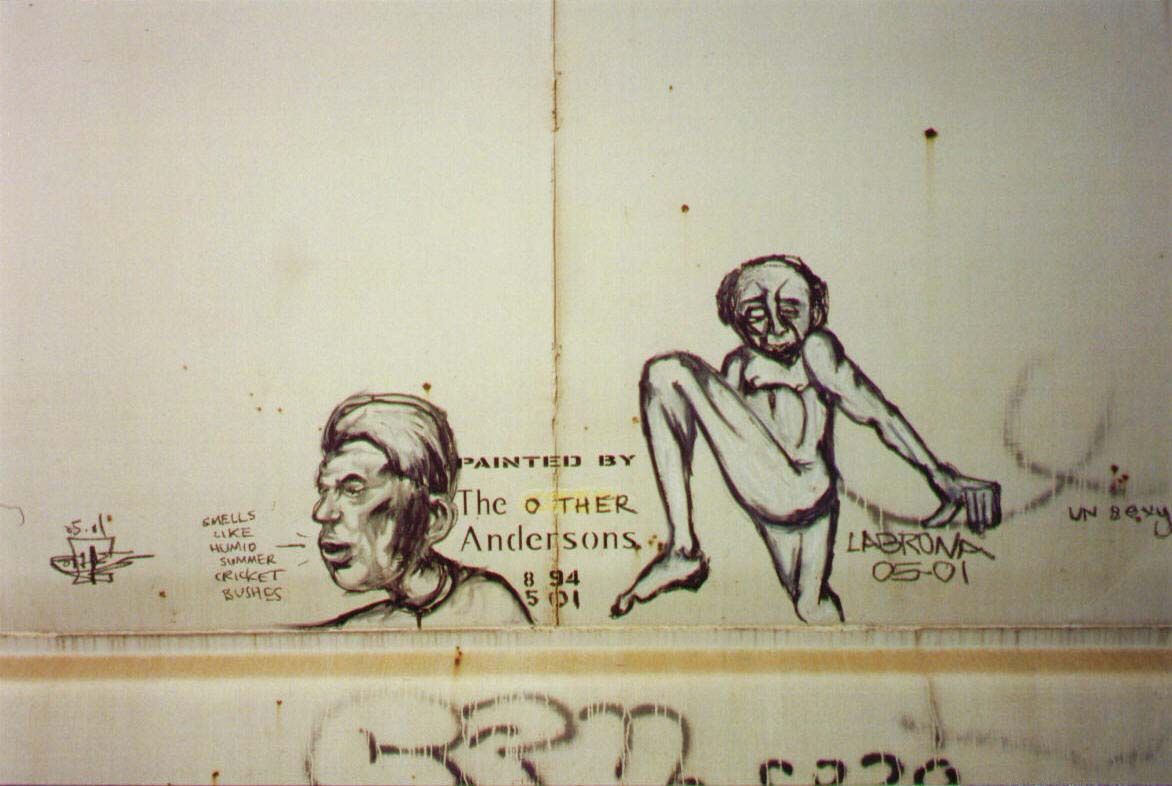 05.01
SMELLS
LIKE
HUMID
SUMMER
CRICKET
BUSHES
PAINTED BY
The OTHER
Andersons
8 94
5 01
LABRONA
05-01
UN SEXY